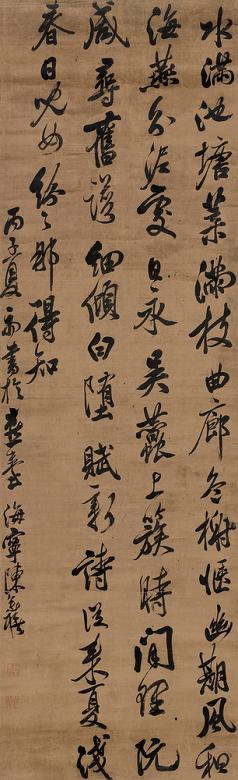 水满池塘菜满枝曲廊冬榭惬幽期风和
海燕分泥处日永吴蚕上簇时闲理阮
咸寻旧谱细倾白堕赋新诗从来夏浅
春日犹如纷纷那得知
丙子夏 书于 海宁陈